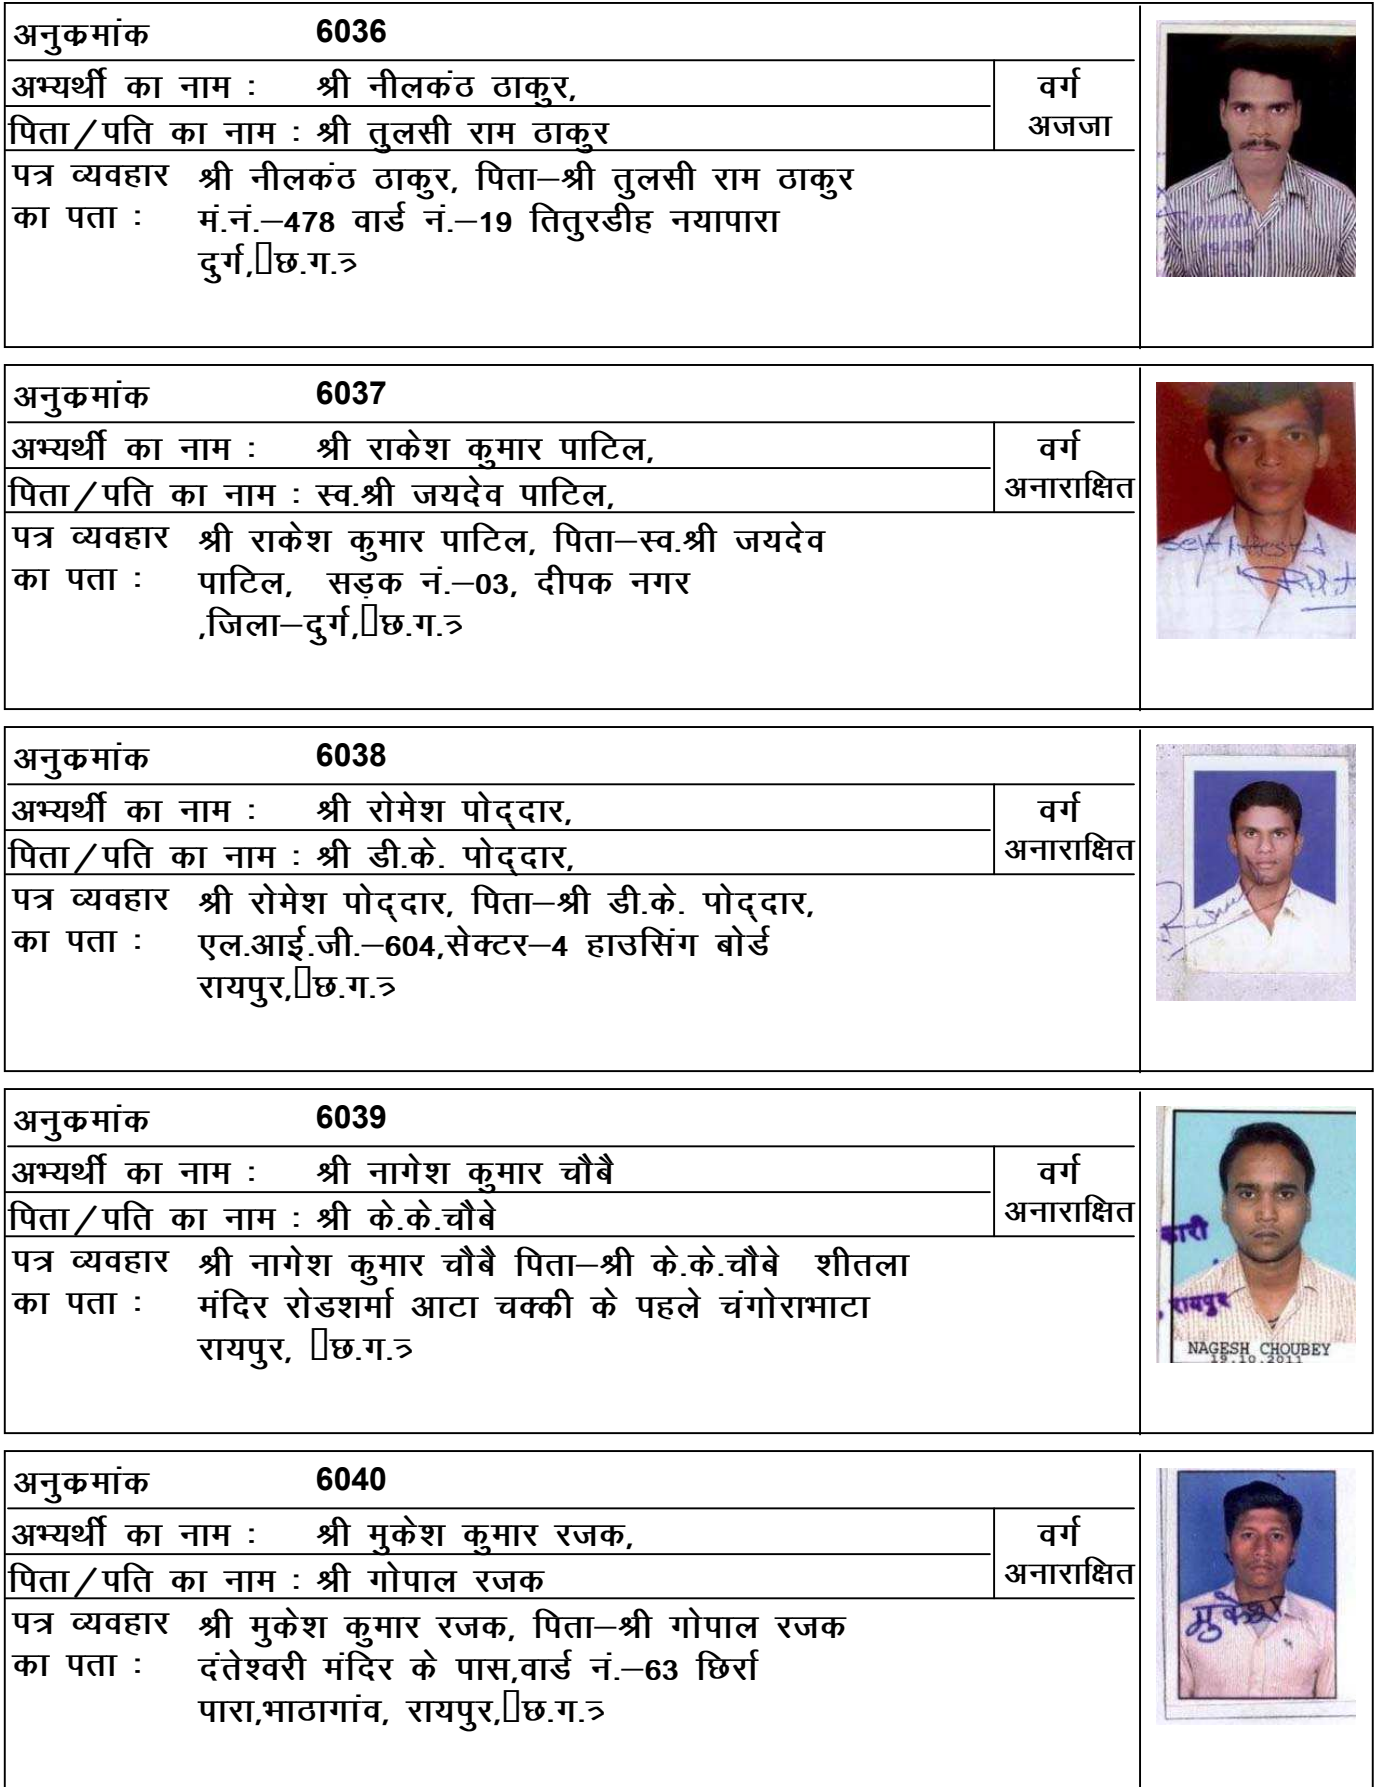 अनुक्रमांक 6036
अभ्यर्थी का नाम : श्री नीलकंठ ठाकुर,
वर्ग
पिता/पति का नाम : श्री तुलसी राम ठाकुर
अजजा
पत्र व्यवहार श्री नीलकंठ ठाकुर, पिता–श्री तुलसी राम ठाकुर
का पता : मं.नं.–478 वार्ड नं.–19 तितुरडीह नयापारा
दुर्ग,छ.ग.
अनुक्रमांक 6037
अभ्यर्थी का नाम : श्री राकेश कुमार पाटिल,
वर्ग
पिता/पति का नाम : स्व.श्री जयदेव पाटिल,
अनाराक्षित
पत्र व्यवहार श्री राकेश कुमार पाटिल, पिता–स्व.श्री जयदेव
का पता : पाटिल, सड़क नं.–03, दीपक नगर
,जिला–दुर्ग,छ.ग.
Self Attested
अनुक्रमांक 6038
अभ्यर्थी का नाम : श्री रोमेश पोद्दार,
वर्ग
पिता/पति का नाम : श्री डी.के. पोद्दार,
अनाराक्षित
पत्र व्यवहार श्री रोमेश पोद्दार, पिता–श्री डी.के. पोद्दार,
का पता : एल.आई.जी.–604,सेक्टर–4 हाउसिंग बोर्ड
रायपुर,छ.ग.
अनुक्रमांक 6039
अभ्यर्थी का नाम : श्री नागेश कुमार चौबै
वर्ग
पिता/पति का नाम : श्री के.के.चौबे
अनाराक्षित
पत्र व्यवहार श्री नागेश कुमार चौबै पिता–श्री के.के.चौबे शीतला
का पता : मंदिर रोडशर्मा आटा चक्की के पहले चंगोराभाटा
रायपुर, छ.ग.
रायपुर
NAGESH CHOUBEY
19.10.2011
अनुक्रमांक 6040
अभ्यर्थी का नाम : श्री मुकेश कुमार रजक,
वर्ग
पिता/पति का नाम : श्री गोपाल रजक
अनाराक्षित
पत्र व्यवहार श्री मुकेश कुमार रजक, पिता–श्री गोपाल रजक
का पता : दंतेश्वरी मंदिर के पास,वार्ड नं.–63 छिर्रा
पारा,भाठागांव, रायपुर,छ.ग.
मुकेश